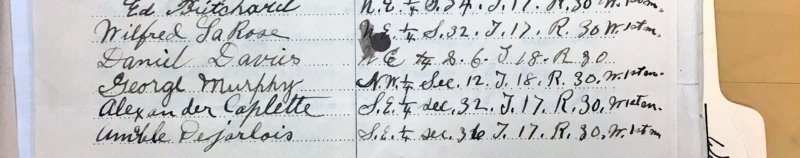 Ed Pritchard N.E. ¼ S. 34. T. 17. R. 30 W. 1st m.
Wilfred LaRose N.E. ¼ S. 32. T. 17. R. 30. W. 1st m.
Daniel Davies N E ¼ S. 6. T. 18. R 30
George Murphy N.W. ¼ Sec. 12. T. 18. R. 30. W. 1st m.
Alexander Caplette S.E. ¼ sec. 32. T. 17. R. 30. W 1st m.
Amible Dejarlois S.E. ¼ sec. 36 T. 17. R. 30. W. 1st m